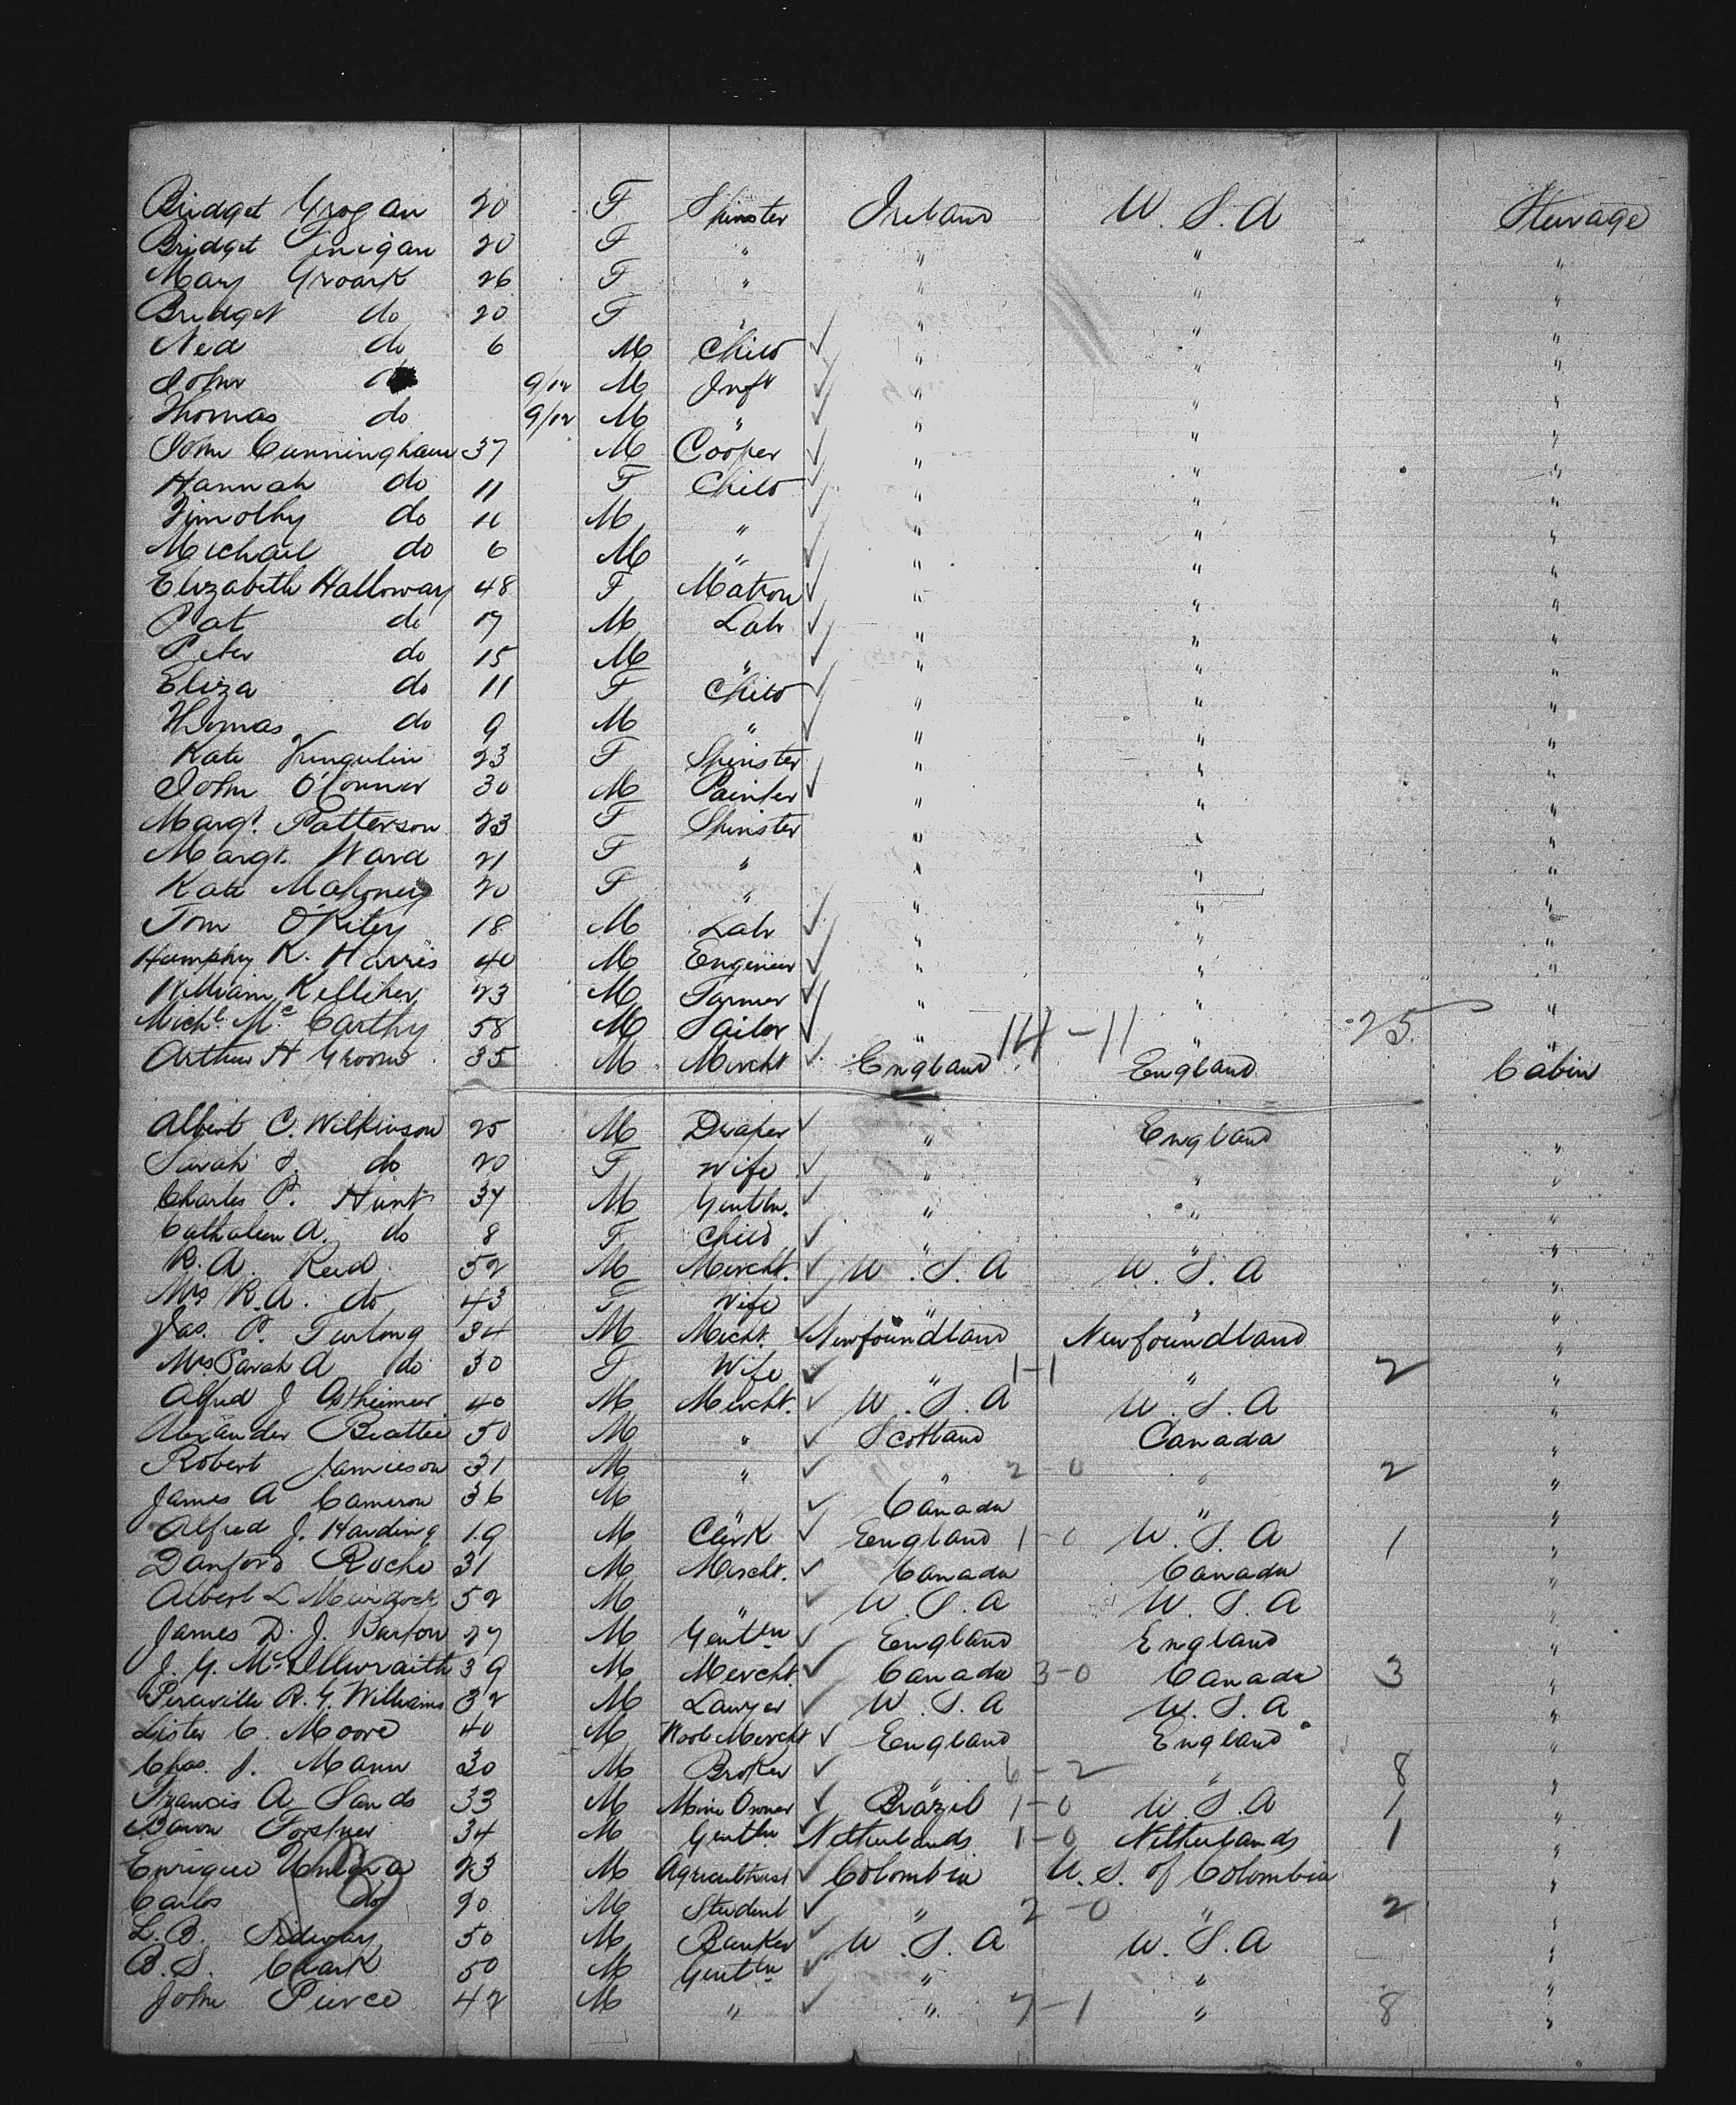 Bridget Grogan 20 F Spinster Ireland U.S.A Steerage
Bridget Finigan 20 F " " " "
Mary Groark 26 F " " " "
Bridget do 20 F " " " "
Ned do 6 M Child " " "
John do 9/12 M Inft " " "
Thomas do 9/12 M " " " "
John Cunningham 37 M Cooper " " "
Hannah do 11 F Child " " "
Timothy do M " " " "
Michael do 6 M " " " "
Elizabeth Halloway 48 F Matron " " "
Pat do 17 M Labr " " "
Peter do 15 M " " " "
Eliza do 11 F Child " " "
Thomas do 9 M " " " "
Kate 23 F Spinster " " "
John O'Connor 30 M Painter " " "
Margt. Patterson 23 F Spinster " " "
Margt. Ward 21 F " " " "
Kate Mahoney 20 F " " " "
Tom O'Riley 18 M Labr " " "
Humphry K. Harris 40 M Engineer " " "
William Kelliher 23 M Farmer " " "
Michl. Mc Carthy 58 M Tailor " 14-11 " 25 "
Arthur H Groom 35 M Mercht England England Cabin
Albert C. Wilkinson 25 M Draper " England "
Sarah S. do 20 F Wife " " "
Charles P. Hunt 34 M Gentln. " " "
Cathaleen A. do 8 F Child " " "
R. A. Reid 52 M Mercht. U.S.A U.S.A "
Mrs R.A. do 43 F Wife " " "
Jas. P. Furlong 34 M Mercht. Newfoundland Newfoundland "
Mrs Sarah A do 30 F Wife " 1-1 " 2 "
Alfred J Ostheimer 40 M Mercht. U.S.A U.S.A "
Alexander Beattie 50 M " Scotland Canada "
Robert Jamieson 31 M " " 2-0 " 2 "
James A Cameron 36 M " Canada " "
Alfred J. Harding 19 M Clerk England 1-0 U.S.A 1 "
Danford Roche 31 M Mercht. Canada Canada "
Albert L Murdock 52 M " U.S.A U.S.A "
James D. J. Barton 27 M Gentln England England "
J. G. McIllwraith 39 M Mercht. Canada 3-0 Canada 3 "
R. G. Williams 32 M Lawyer U.S.A U.S.A "
Lister C. Moore 40 M Wool Mercht England England "
Chas. J. Mann 30 M Broker " 6-2 " 8 "
Francis A Sands 33 M Mine Owner Brazil 1-0 U.S.A 1 "
Baron Forstner 34 M Gentln Netherlands 1-0 Netherlands 1 "
Enrique Umana 23 M Agriculturist Colombia U.S. of Colombia "
Carlos do 20 M Student " 2-0 " 2 "
L. B. Sidway 50 M Banker U.S.A U.S.A "
B. S. Clark 50 M Gentln " " "
John Pierce 42 M " " 7-1 " 8 "